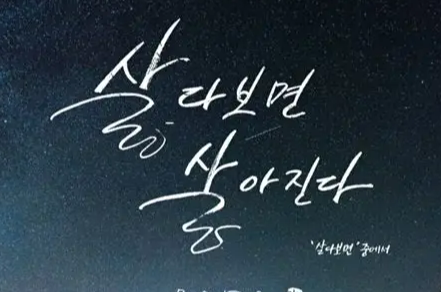 살다보면
살아진다
'살다보면' 중에서